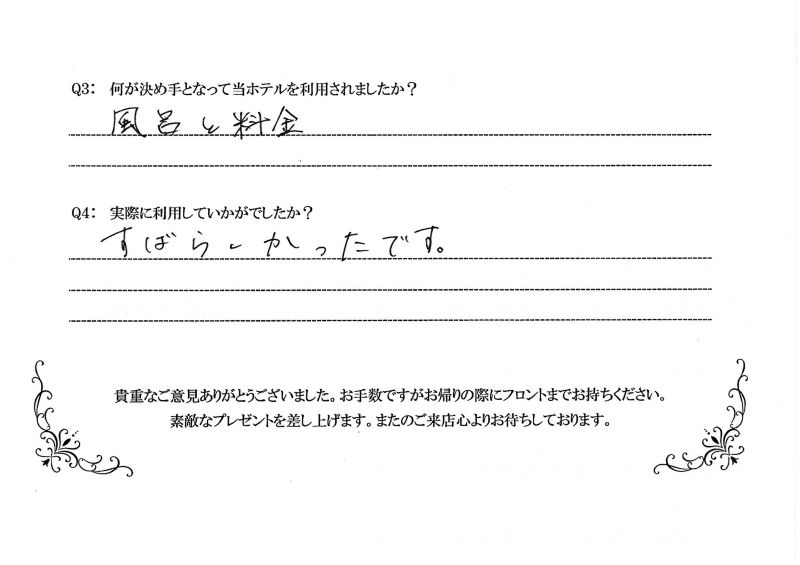 Q3: 何が決め手となって当ホテルを利用されましたか？
風呂と料金
Q4: 実際に利用していかがでしたか？
すばらしかったです。
貴重なご意見ありがとうございました。お手数ですがお帰りの際にフロントまでお持ちください。
素敵なプレゼントを差し上げます。またのご来店心よりお待ちしております。